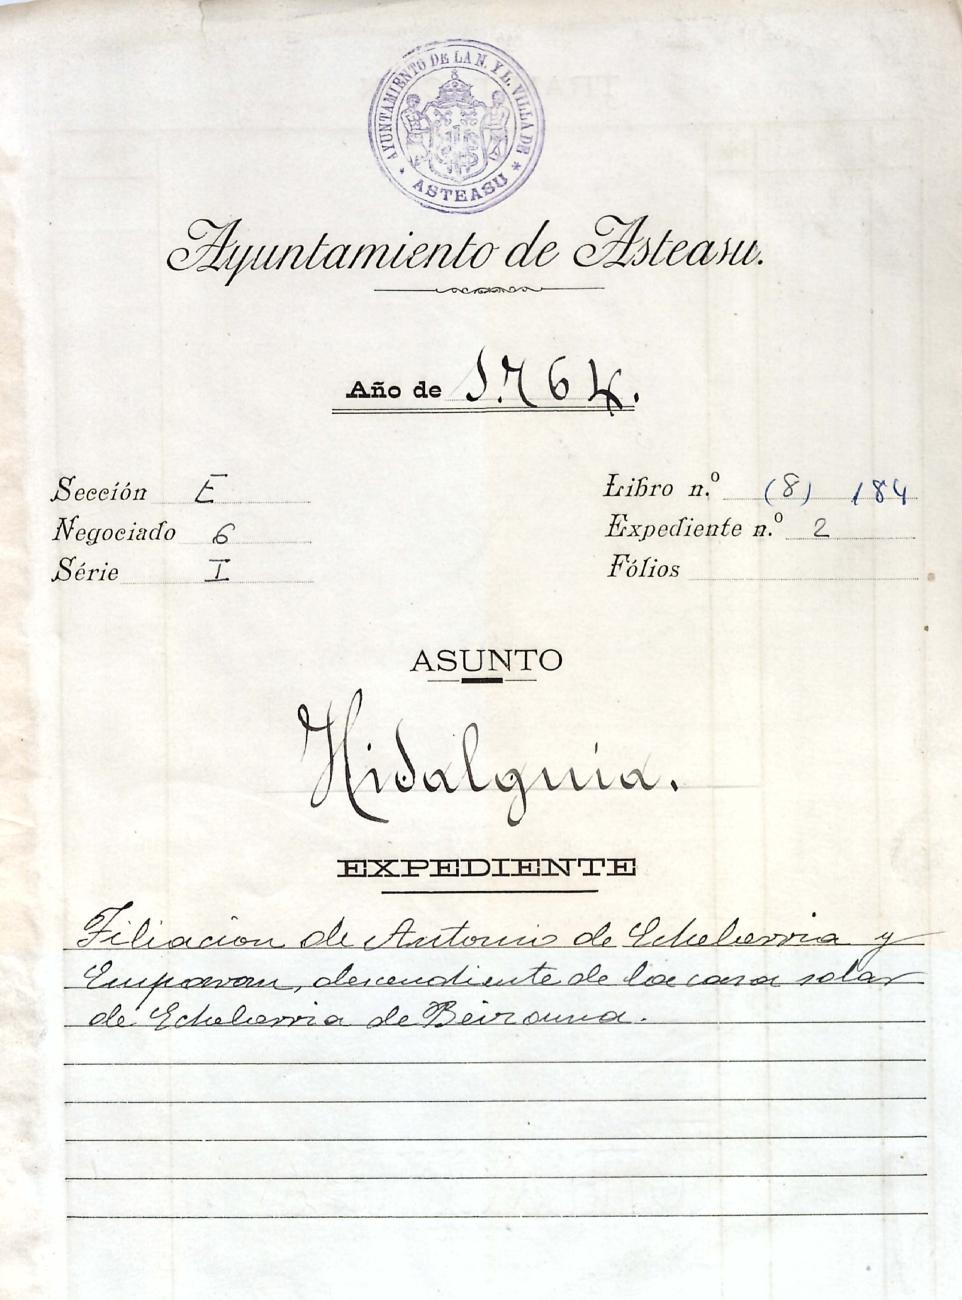 AYUNTAMIENTO DE LA N. Y L. VILLA DE
* ASTEASU *
Ayuntamiento de Asteasu.
Año de 1.764.
Sección E
Libro n.º (8) 184
Negociado 6
Expediente n.º 2
Série I
Fólios
ASUNTO
Hidalguía.
EXPEDIENTE
Filiación de Antonio de Echeberria y
Emparan, descendiente de la casa solar
de Echeberria de